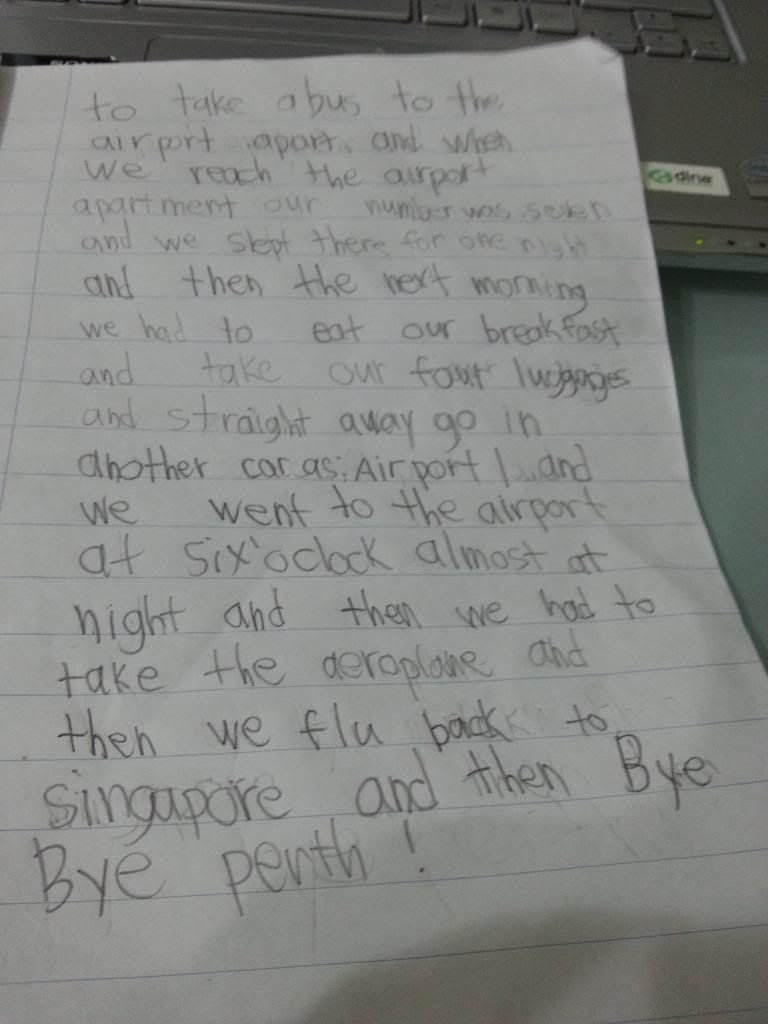 to take a bus to the
airport apart. and when
we reach the airport
apartment our number was seven
and we slept there for one night
and then the next morning
we had to eat our breakfast
and take our four luggages
and straight away go in
another car as. Airport 1 and
we went to the airport
at six'oclock almost at
night and then we had to
take the aeroplane and
then we flu back to
singapore and then Bye
Bye perth !